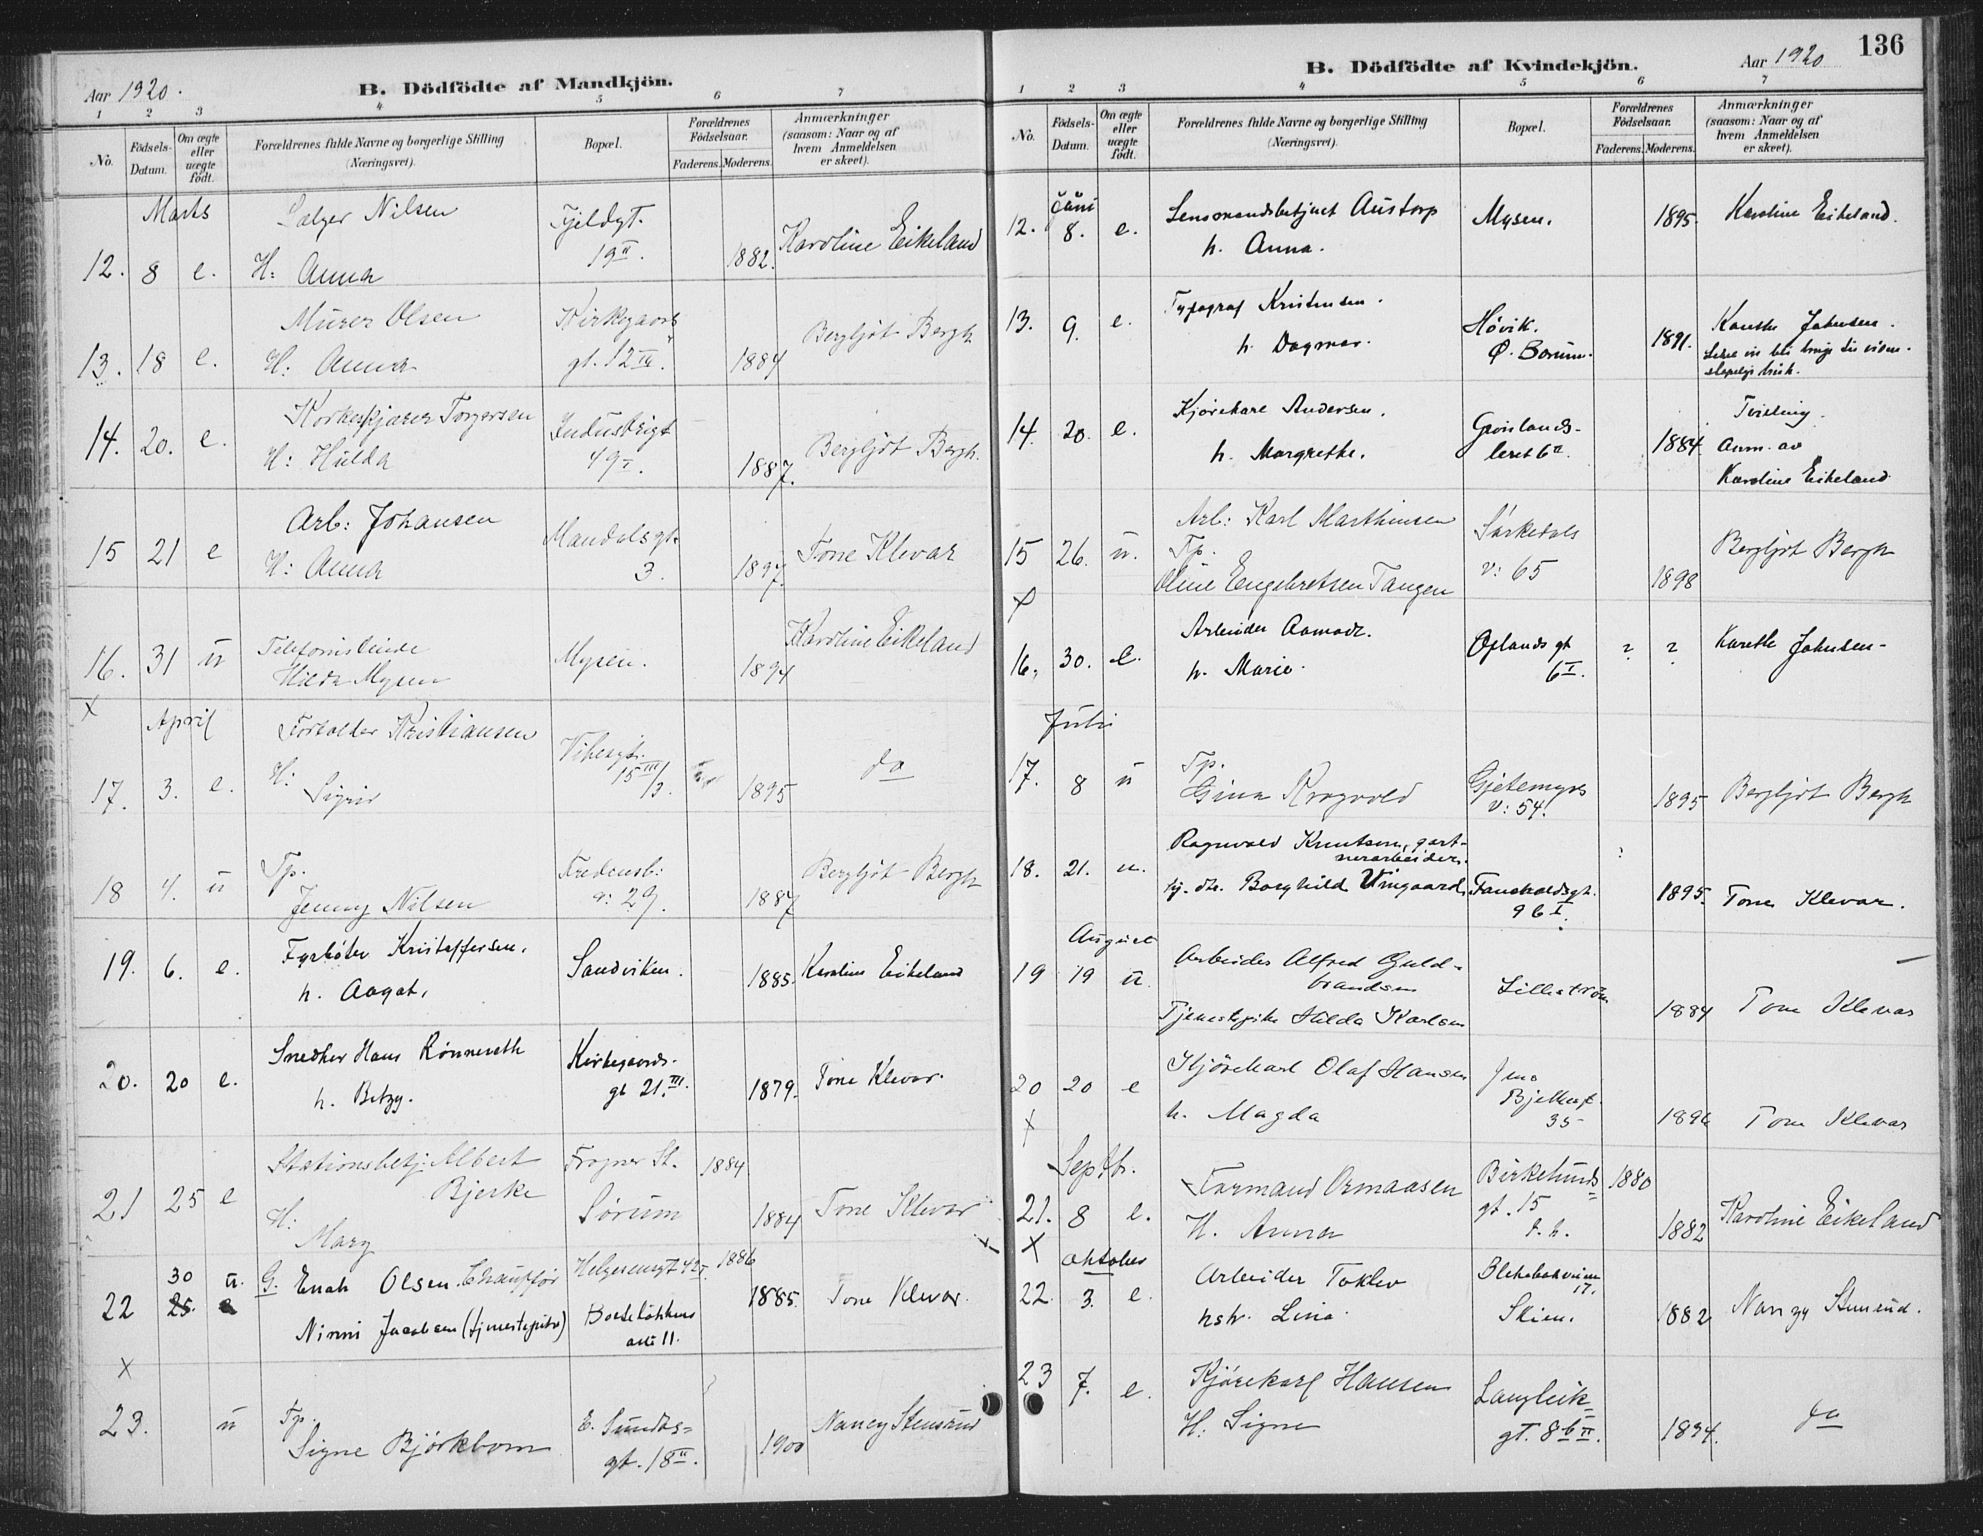 136
Aar 1920.
B. Dödfödte af Mandkjön.
1 2 3 4 5 6 7
No.
Födsels-Datum.
Om ægte eller uægte födt.
Forældrenes fulde Navne og borgerlige Stilling (Næringsvei).
Bopæl.
Forældrenes Födselsaar.
Faderens. Moderens.
Anmærkninger (saasom: Naar og af hvem Anmeldelsen er skeet).
Marts
Sælger Nilsen
Fjeldgt.
19 II.
12. 8 e. H: Anna 1882. Karoline Eikeland
Murer Olsen
Kirkegaards
gt. 12 IV.
13. 18 e. H: Anna 1884 Bergljót Bergh
Korkeskjærer Torgersen
Industrigt
49 I.
14. 20. e. H: Hulda 1887. Bergljót Bergh.
Arb: Johansen
Mandalsgt.
3.
15 21 e H: Anna 1897. Tone Klevar
16. 31 ü Telefonistinde
Hilda Mysen
Mysen. 1894 Karoline Eikeland
X
April
Forvalter Kristiansen
Vibesgt.
15 III/3
17. 3. e. H: Sigrid 1895 do
18 4. ü Tp.
Jenny Nilsen
Fredensb:
v: 29. 1887 Bergljót Bergh
19. 6. e. Fyrbøter Kristoffersen.
h. Aagot.
Sandviken. 1885. Karoline Eikeland
20. 20 e. Snedker Hans Rönnereth
h. Betzy.
Kirkegaards-
gt 21. III. 1879. Tone Klevar.
21 25 e Stationsbetj. Albert
Bjerke
H:
Mary
Frogner St.
Sørum
1884 1884 Tone Klevar
22 30 ü. G. Enok Olsen. Chauffør
25. e Ninni Jacobsen (tjenestepike)
Helgesensgt 42 I. 1886
Boeteløkkens
alle 11. 1885. Tone Klevar.
X
23. ü Tp.
Signe Bjørkbom
E. Sundts=
gt. 18 II. 1900 Nancy Stensrud
Aar 1920
B. Dödfödte af Kvindekjön.
1 2 3 4 5 6 7
No.
Födsels-Datum.
Om ægte eller uægte födt.
Forældrenes fulde Navne og borgerlige Stilling (Næringsvei).
Bopæl.
Forældrenes Födselsaar.
Faderens. Moderens.
Anmærkninger (saasom: Naar og af hvem Anmeldelsen er skeet).
Juni
12. 8. e. Lensmandsbetjent Austorp
h. Anna.
Mysen. 1895. Karoline Eikeland.
13. 9. e. Typograf Kristensen.
h. Dagmar.
Høvik.
Ø. Bærum. 1891. Kanthe Johnsen.
14. 20. e. Kjørekare Andersen.
h. Margrethe.
Grønlands-
leret 6 II. 1884 Tvilling.
Anm. av
Karoline Eikeland
15 26. ü. Arb: Karl Marthinsen
Tp.
Oline Engebretsen Tangen
Sørkedals
v: 65 1898 Bergljót Bergh
X
16. 30. e. Arbeider Aamodt.
h. Marie.
Øglands gt
6 I. ? ? Karethe Johnsen-
Juli
17. 8 ü Tp.
Gina Kragvold
Gjetemyrs
v: 54. 1895 Bergljót Bergh
18. 21. u. Ragnvald Knutsen, gart-
nerarbeider.
tj. dtr. Borghild Vingaard.
Fauchaldsgt.
96 I. 1895. Tone Klevar.
August
19 19 ü. Arbeider Alfred Guld-
brandsen
Tjenestepike Hilda Karlsen
Lillestrøm 1884 Tone Klevar
20 20 e Kjørekarl Olaf Hansen
h. Magda
Jens
Bjelkesgt.
35 1896 Tone Klevar
X
Septbr.
21. 8 e. Formand Ormaasen
H. Anna
Birkelunds=
gt. 15 1880 1882 Karoline Eikeland
X
Oktober
22. 3. e. Arbeider Toklev
hstr. Lina.
Blekebakveien
17.
Skien. 1882 Nancy Stensrud.
23 7. e. Kjørekarl Hansen
H. Signe
Langleik=
gt. 8 b II. 1894. do